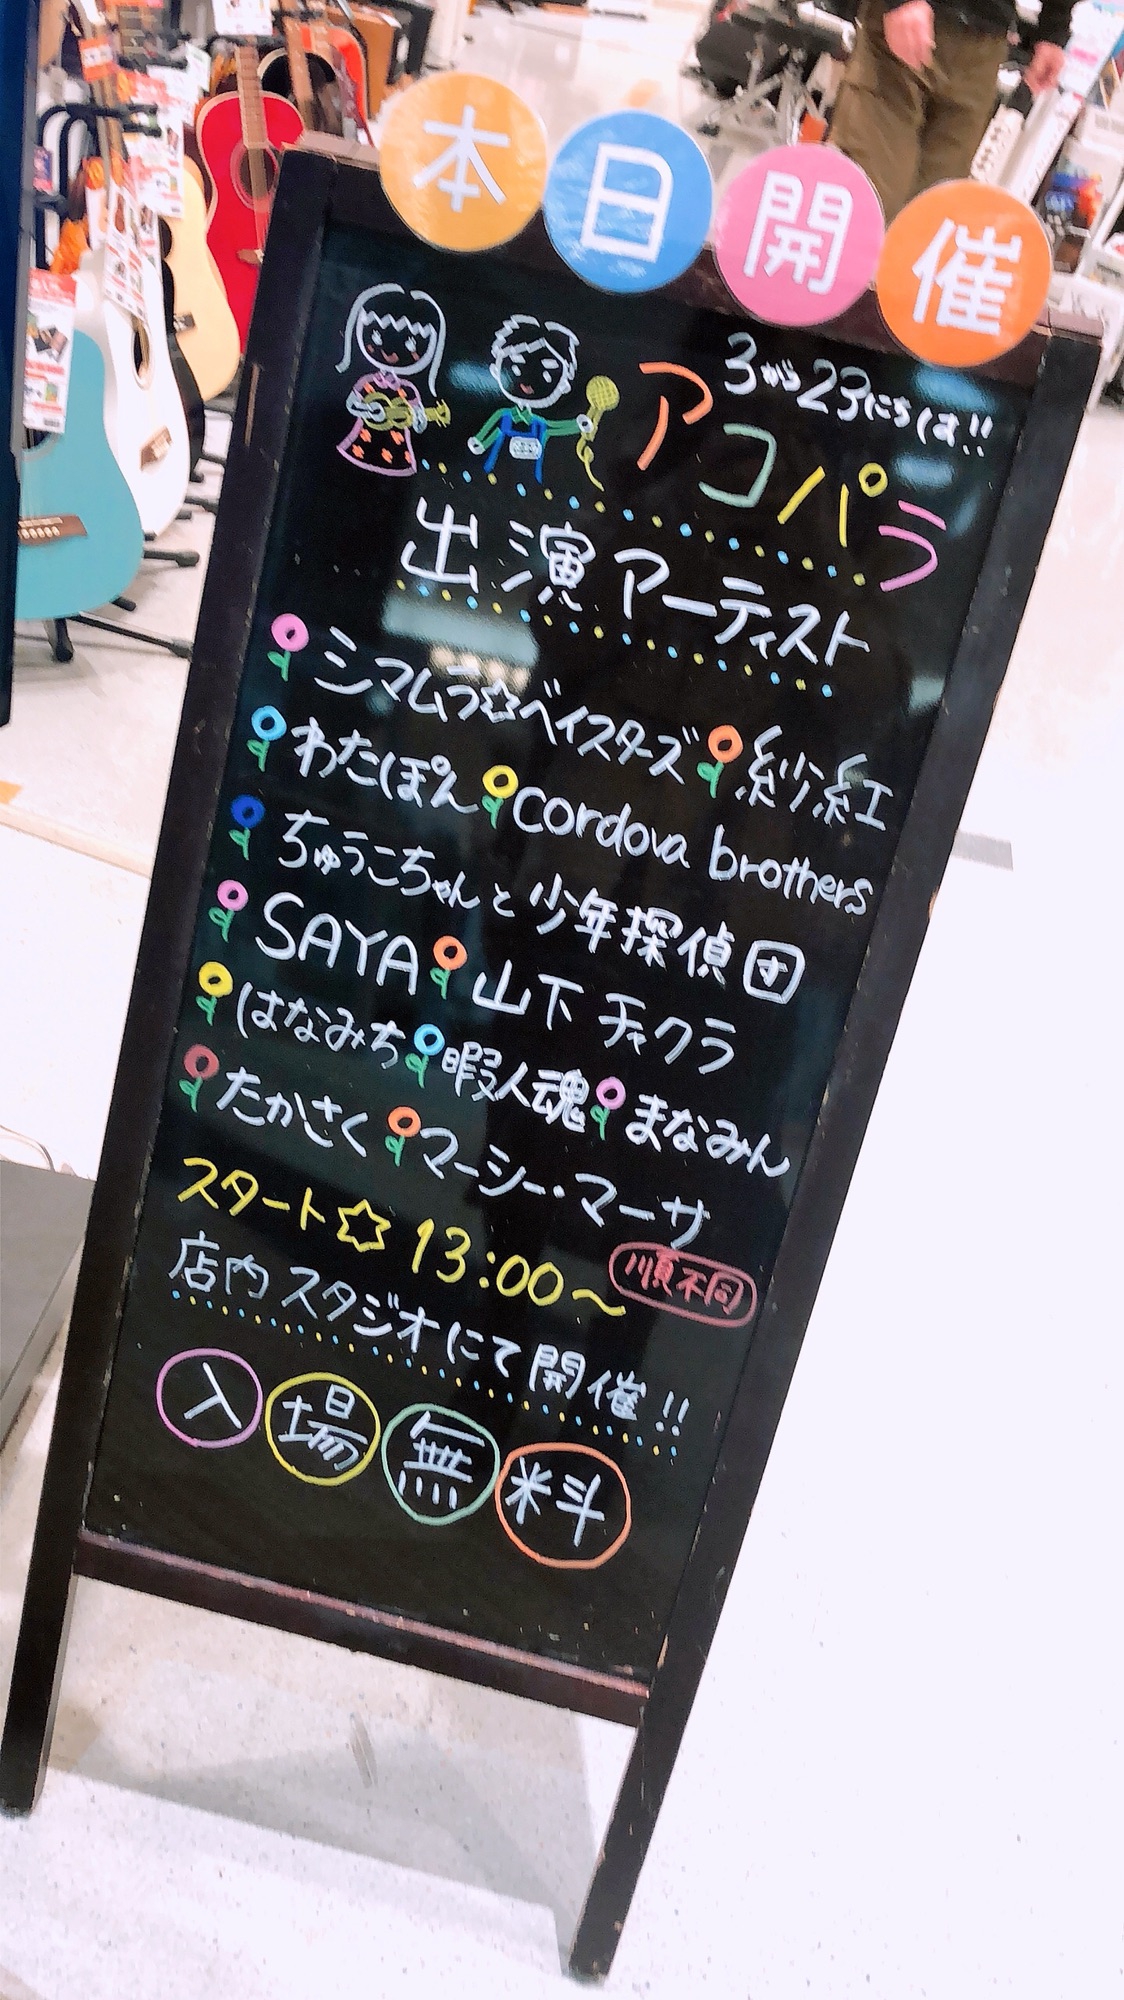 本日開催
3がつ23にちは!!
アコパラ
出演アーティスト
シマムラ☆ベイスターズ 紗紅
わたぽん cordova brothers
ちゅうこちゃんと少年探偵団
SAYA 山下チャクラ
はなみち 暇人魂 まなみん
たかさく マーシー・マーサ
順不同
スタート☆13:00〜
店内スタジオにて開催!!
入場無料